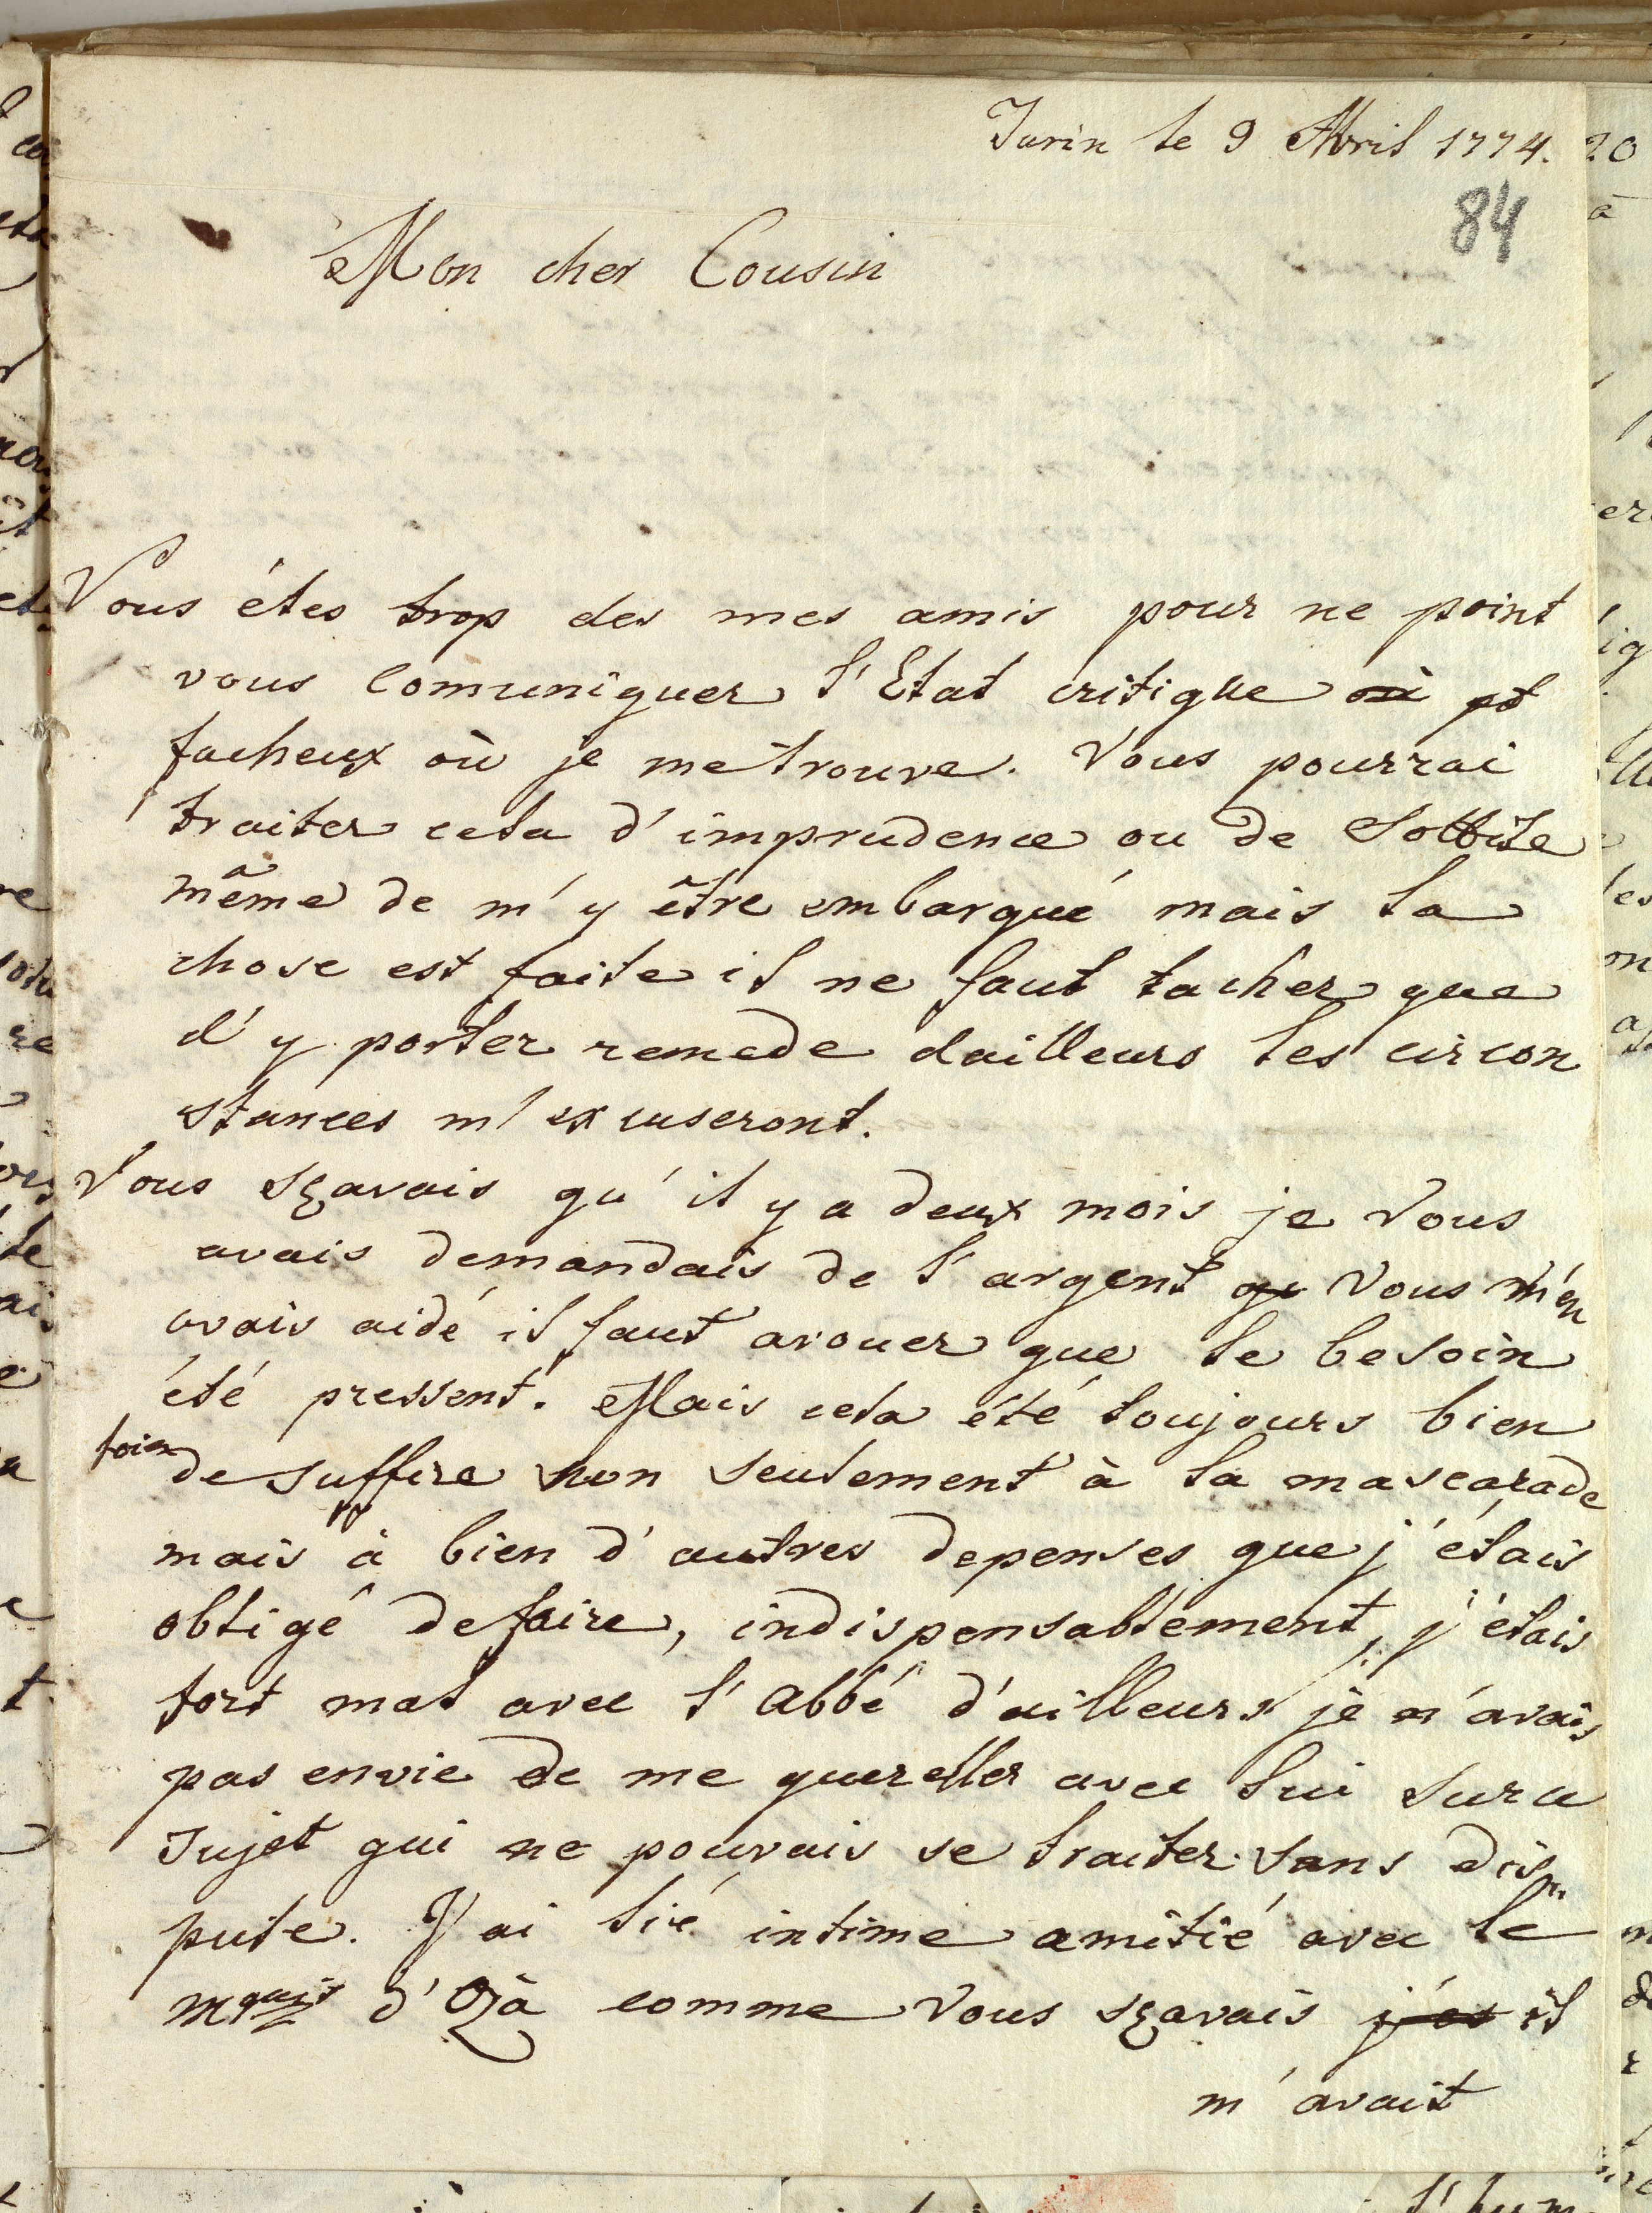 Turin le 9 Avril 1774.
84
Mon cher Cousin
Vous étes trop des mes amis pour ne point
vous comuniquer l'Etat critique où et
facheux où je me trouve. Vous pourrai
traiter cela d'imprudence ou de Sottise
même de m'y être embarqué mais la
chose est faite il ne faut tacher que
d'y porter remede dailleurs les circon
stances m'excuseront.
Vous sçavais qu'il y a deux mois je vous
avais demandais de l'argent qu vous m'en
avais aidé il faut avouer que le besoin
été pressent. Mais cela été toujours bien
loin de suffire non seulement à la mascarade
mais à bien d'autres depenses que j'étais
obligé de faire, indispensablement, j'étais
fort mal avec l'abbé d'ailleurs je n'avais
pas envie de me quereller avec lui sur ce
sujet qui ne pouvais se traiter sans dis
pute. J'ai lié intime amitié avec le
mquis d'Ozà comme vous sçavais j'es il
m'avait